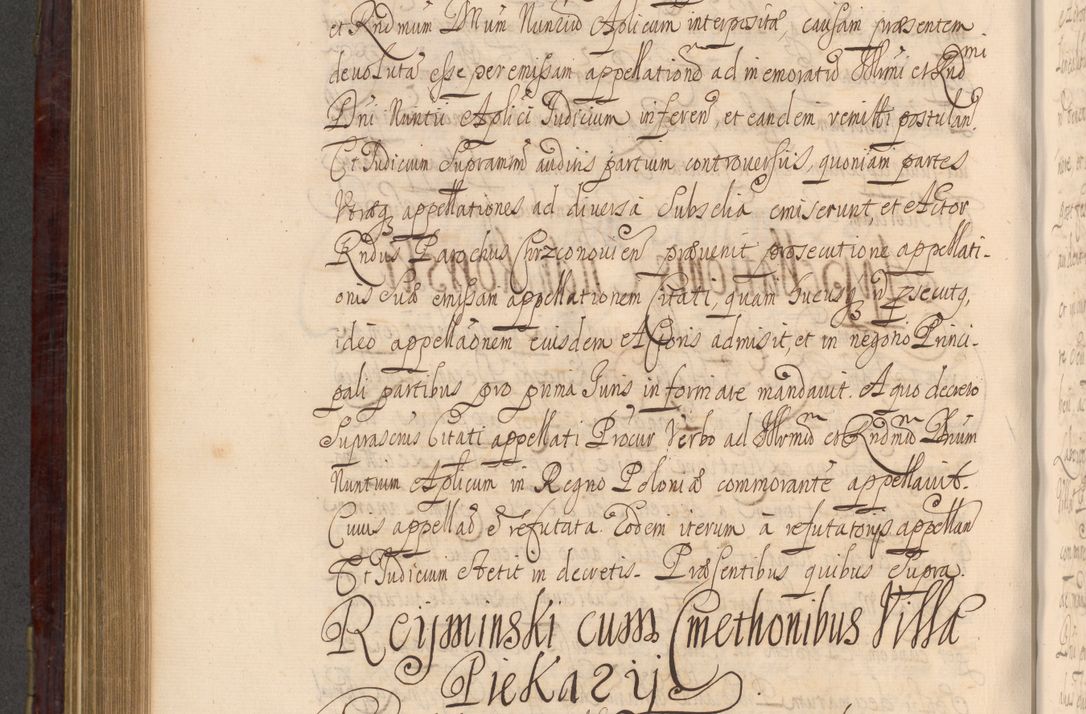 et Rndmum Dnum Nuntium Aplicum interposita, causam præsentem
devoluta esse per emissam appellationē ad memoratū Illrmi et Rndmi
Dni Nuntii Aplici Judicium inferen, et eandem remitti postulan
Et Judicium Supramm auditis partium controversiis, quoniam partes
Utræq appellationes ad diversa Subselia emiserunt, et Actor
Rndus Parochus prævenit prosecutione appellati-
onis suæ emissam appellationem Citati, quam hucusq n psecutq,
ideo appellaonem eiusdem Actoris admisit, et in negotio Princi-
pali partibus pro prima Juris informare mandavit. A quo decreto
Suprascriis Citati appellati Procur Verbo ad Illrmū et Rndmū Dnum
Nuntium Aplicum in Regno Poloniæ commorante appellavit.
Cuius appellaō ē refutata Eodem iterum a refutatorijs appellan
Et Judicium Stetit in decretis. Præsentibus quibus supra.
Reijminski cum Cmethonibus Villæ
Piekarij.